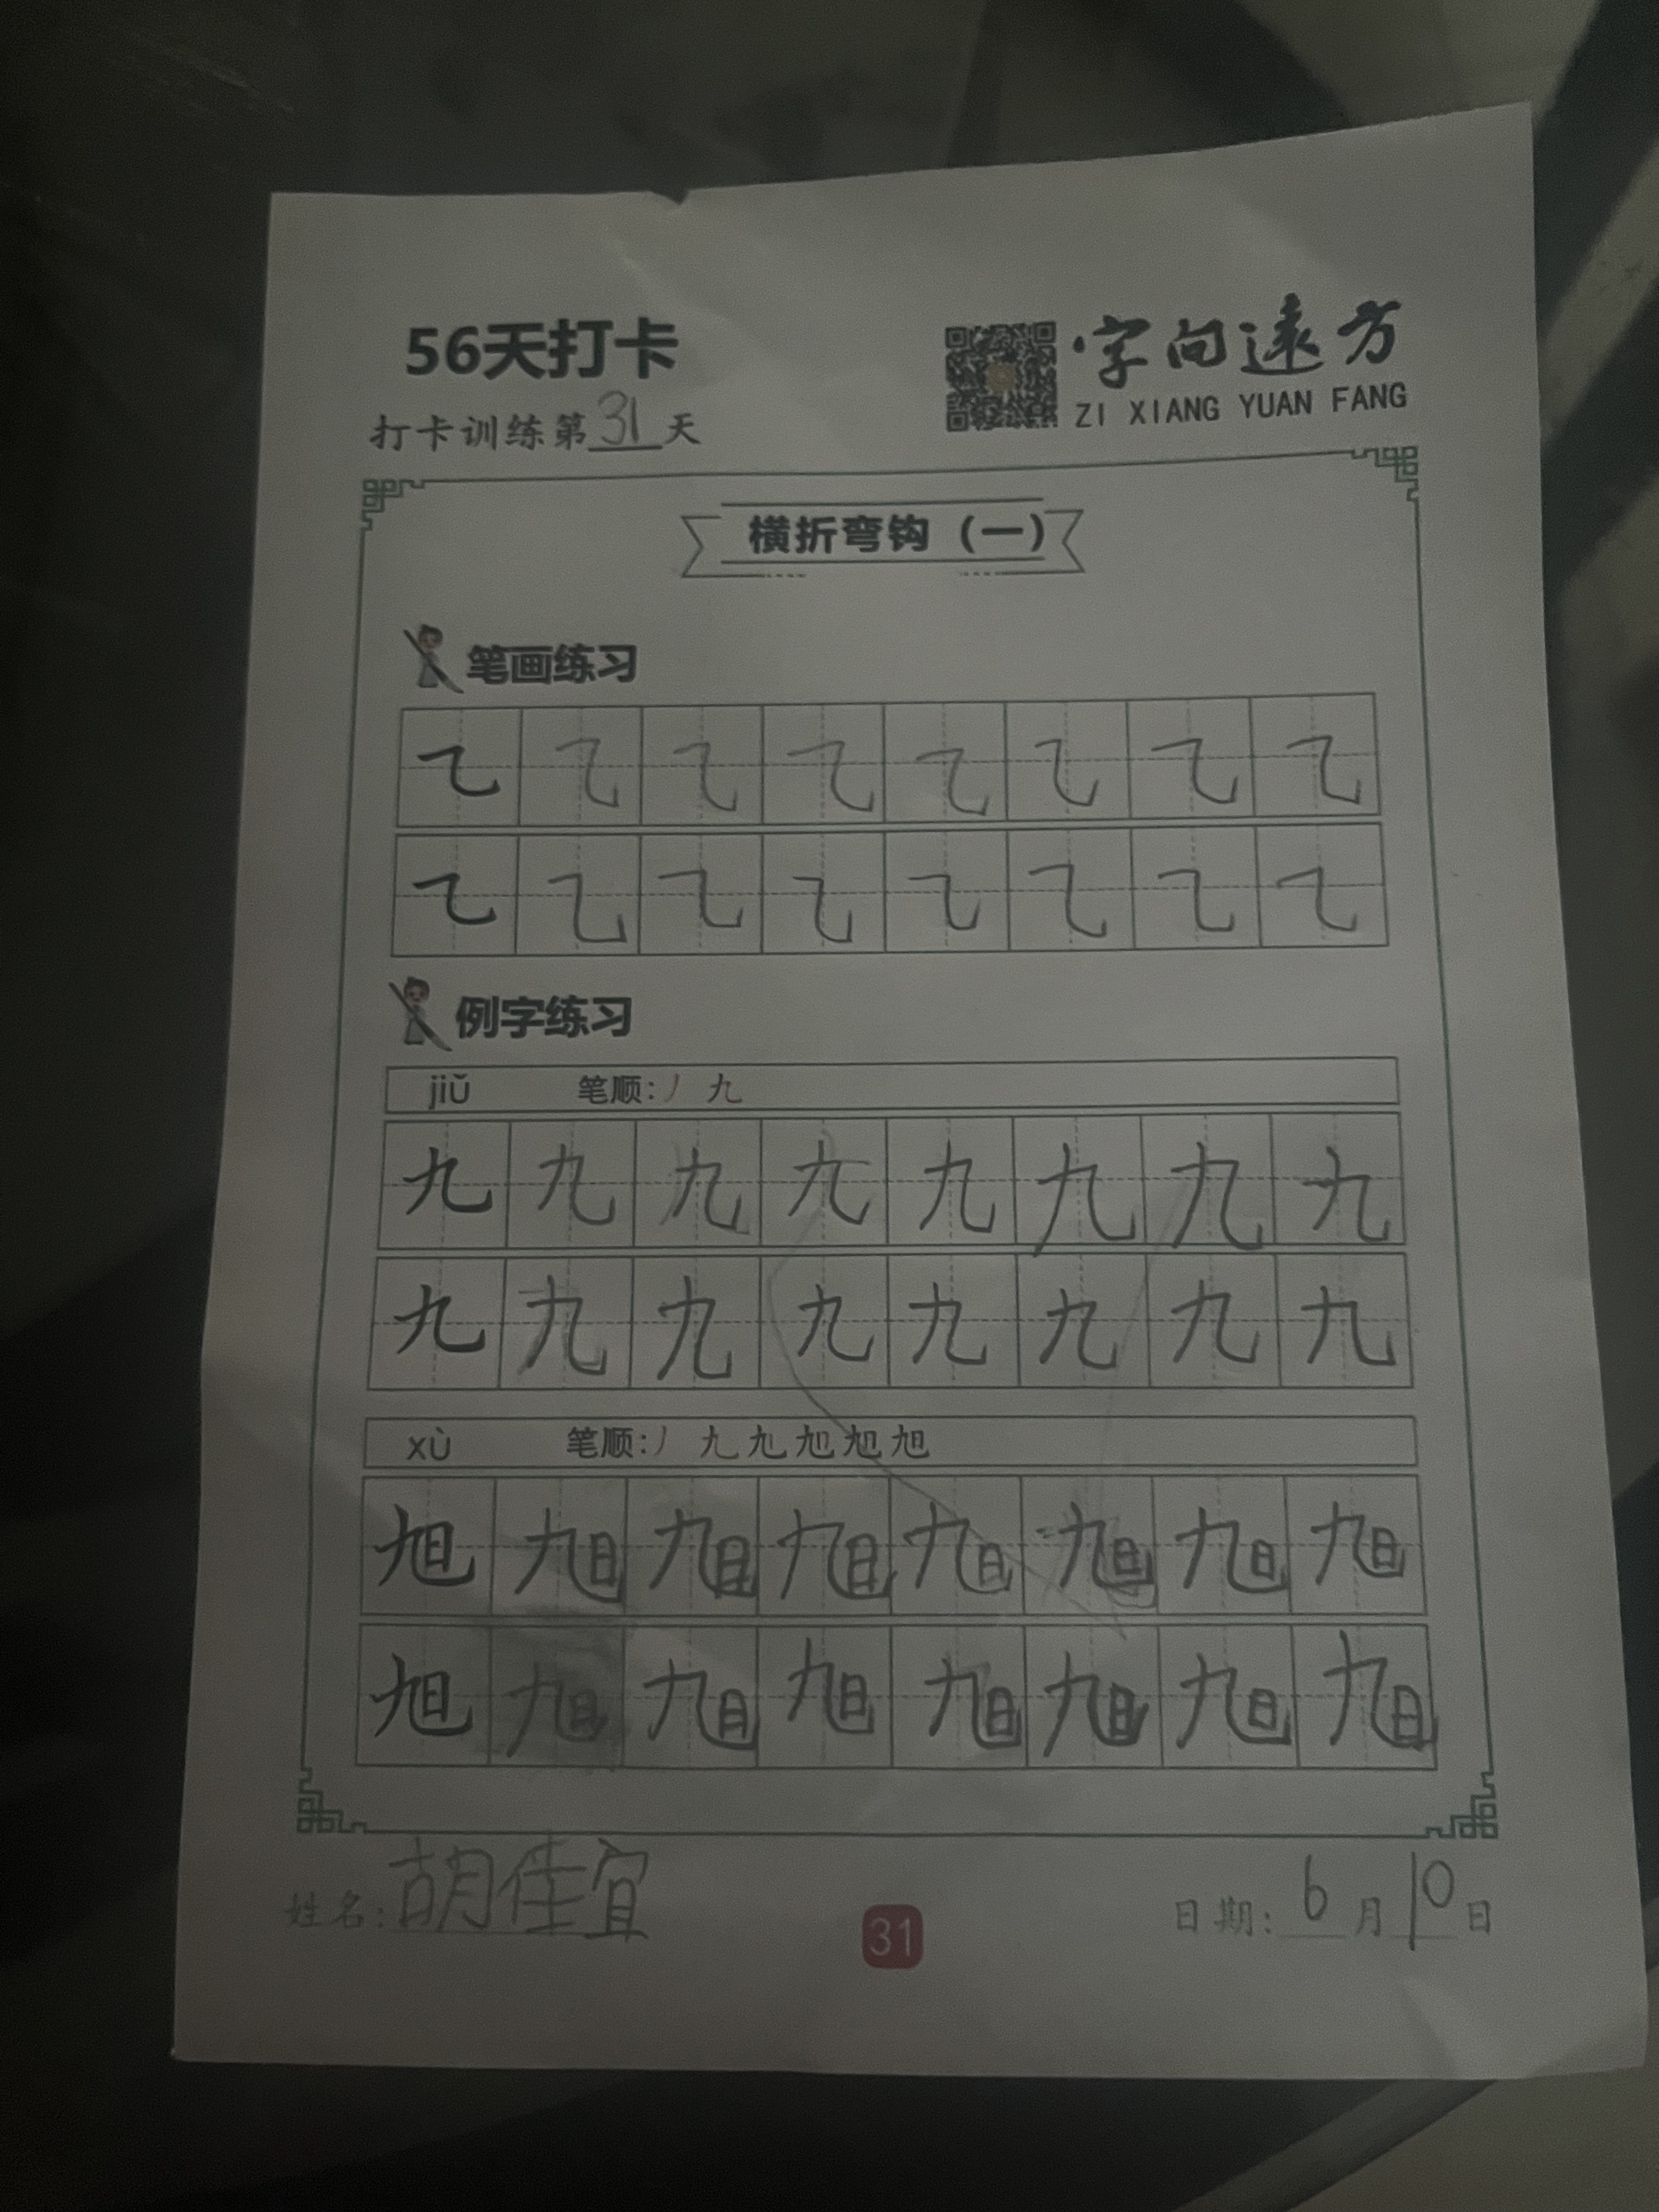 56天打卡
字向远方
打卡训练第31天
ZI XIANG YUAN FANG
横折弯钩（一）
笔画练习
㇈ ㇈ ㇈ ㇈ ㇈ ㇈ ㇈ ㇈
㇈ ㇈ ㇈ ㇈ ㇈ ㇈ ㇈ ㇈
例字练习
jiǔ 笔顺:丿 九
九 九 九 九 九 九 九 九
九 九 九 九 九 九 九 九
xù 笔顺:丿 九 旭 旭 旭 旭
旭 旭 旭 旭 旭 旭 旭 旭
旭 旭 旭 旭 旭 旭 旭 旭
姓名:胡佳宜
31
日期:6月10日